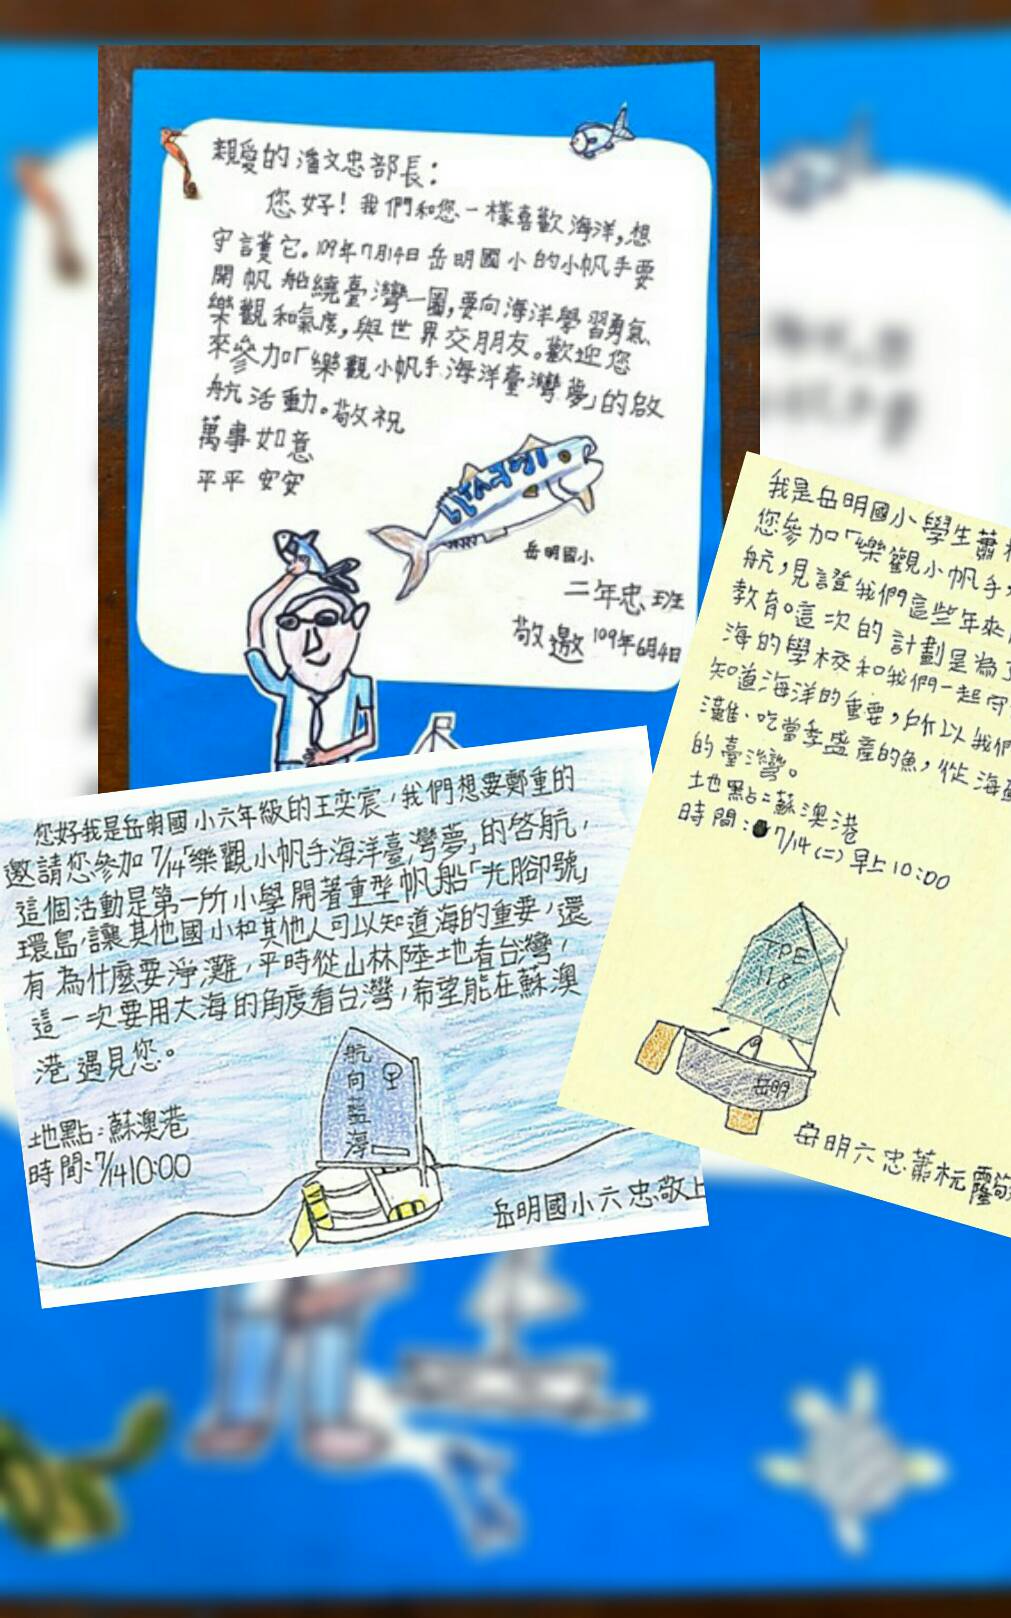 親愛的潘文忠部長：
您好！我們和您一樣喜歡海洋，想
守護它。109年7月14日岳明國小的小帆手要
開帆船繞臺灣一圈，要向海洋學習勇氣、
樂觀和氣度，與世界交朋友。歡迎您
來參加「樂觀小帆手海洋臺灣夢」的啟
航活動。敬祝
萬事如意
平平安安
岳明國小
二年忠班
敬邀109年6月4日
我是岳明國小學生蕭
您參加「樂觀小帆手，
航，見證我們這些年來
教育。這次的計劃是為了
海的學校和我們一起守
知道海洋的重要，所以我們
灘、吃當季盛產的魚，從海
的臺灣。
地點：蘇澳港
時間：7/14(二)早上10:00
TPE
118
岳明
岳明六忠蕭
您好我是岳明國小六年級的王奕宸，我們想要鄭重的
邀請您參加7/14「樂觀小帆手海洋臺灣夢」的啓航，
這個活動是第一所小學開著重型帆船「光腳號」
環島，讓其他國小和其他人可以知道海的重要，還
有為什麼要淨灘，平時從山林陸地看台灣，
這一次要用大海的角度看台灣，希望能在蘇澳
港遇見您。
地點：蘇澳港
時間：7/14 10:00
航向藍海
岳明國小六忠敬上